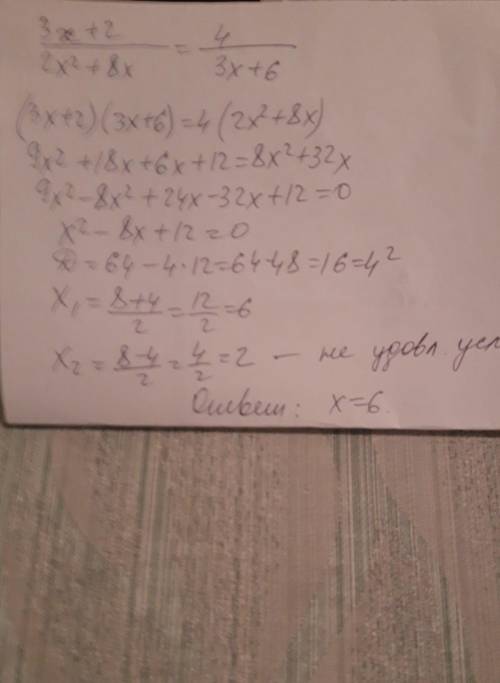 (3x+2)/(2x²+8x) = 4/(3x+6)
(3x+2)(3x+6)=4(2x²+8x)
9x²+18x+6x+12=8x²+32x
9x²-8x²+24x-32x+12=0
x²-8x+12=0
D=64-4·12=64-48=16=4²
x₁=(8+4)/2=12/2=6
x₂=(8-4)/2=4/2=2 — не удовл. усл
Ответ: x=6.